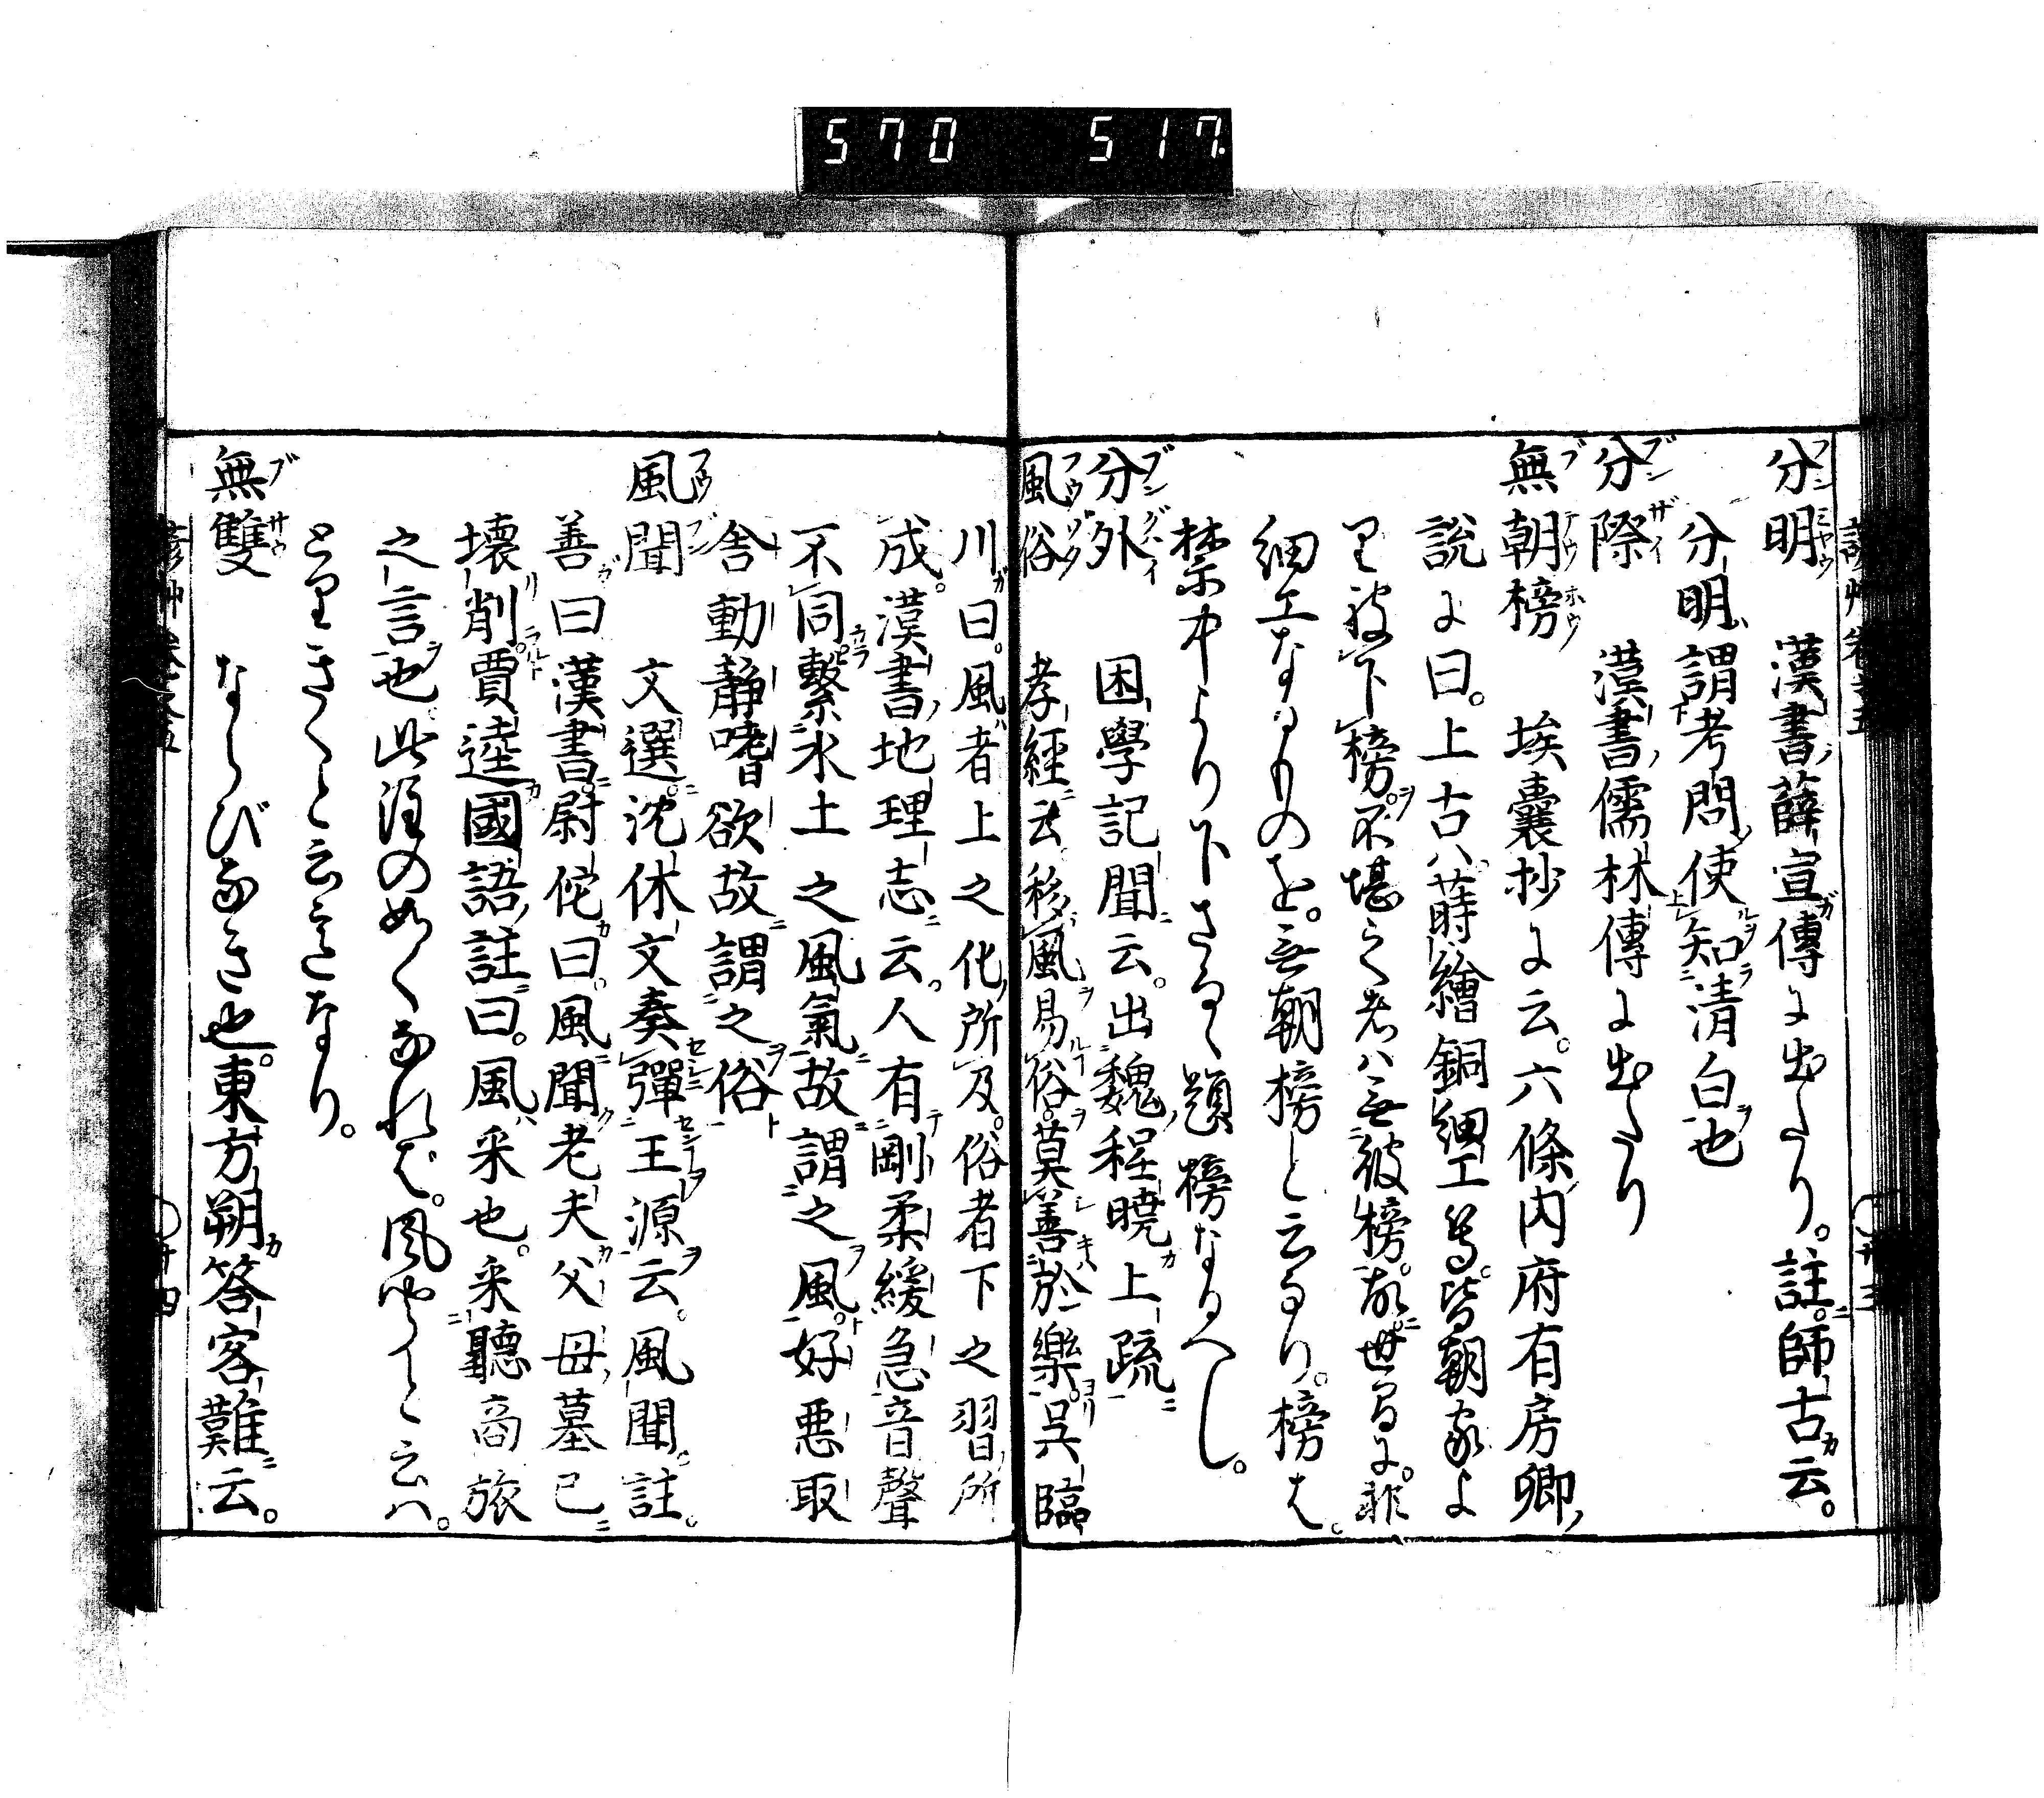 570 517
分明 漢書薛宣傳に出たり。註。師古云。
分明謂考問使知清白也
分際 漢書儒林傳に出たり
無朝榜 埃囊抄に云。六條内府有房卿
說に曰。上古ハ蒔繪銅細工等。皆朝家よ
り被下榜。不堪之者ハ無彼榜。故世俗に。非
細工なるものを。無朝榜と云なり。榜は。
禁中より下さるゝ題榜なるへし。
分外 困學記聞云。出魏程曉上疏
風俗 孝經云移風易俗。莫善於樂。呉臨
川曰。風者上之化所及。俗者下之習所
成。漢書地理志云。人有剛柔緩急音聲
不同繫水土之風氣故謂之風。好悪取
舎動靜嗜欲故謂之俗
風聞 文選沈休文奏彈王源云。風聞。註。
善曰漢書尉佗曰。風聞老夫父母墓已
壊削賈逵國語註曰。風采也。采聽商旅
之言也。此註の如くなれば。風聞と云ハ。
とりきくと云意なり。
無雙 ならびなき也。東方朔答客難云。